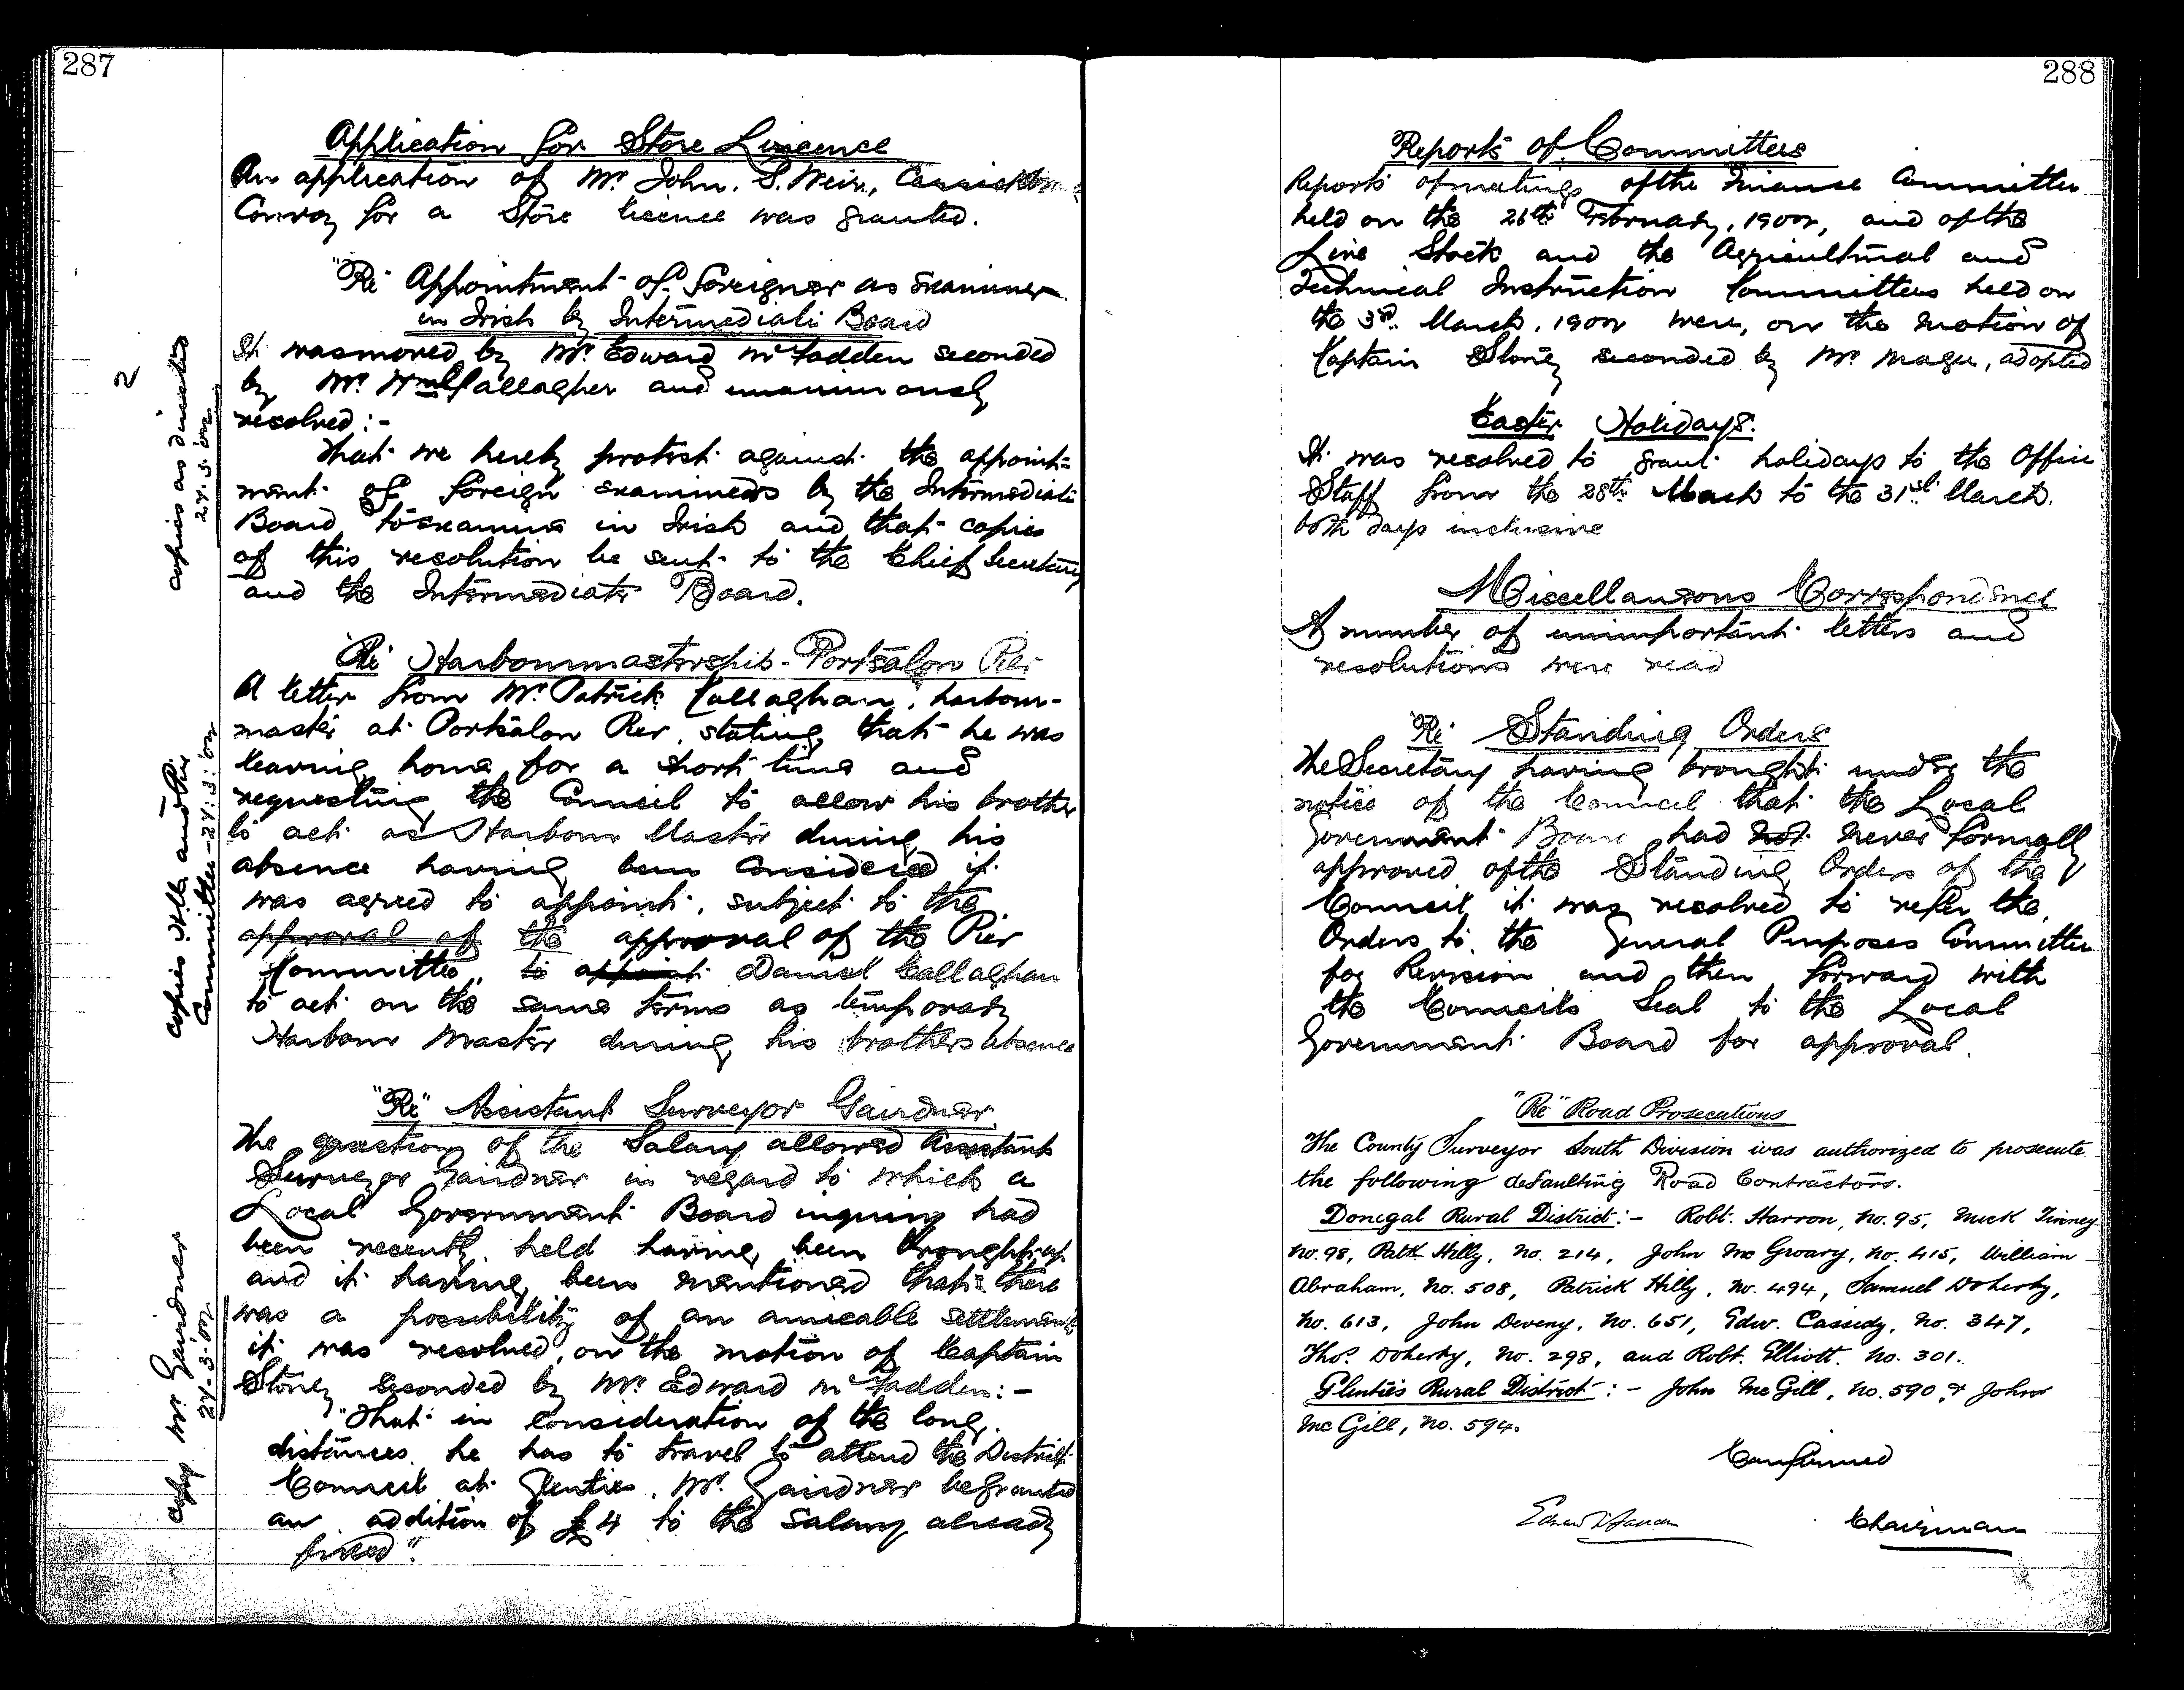 287
Application for Store Liscence
An application of Mr. John. S. Weir,
Convoy for a Store licence was granted.
"Re" Appointment of foreigner as Examiner
in Irish by Intermediate Board
It was moved by Mr. Edward McFadden seconded
by Mr. Wm Gallagher and unanimously
resolved:-
That we hereby protest against the appoint=
ment of foreign examiners by the Intermediate
Board to examine in Irish and that copies
of this resolution be sent to the Chief Secretary
and the Intermediate Board.
copies as directed
24.3.02
2
"Re" Harbourmastership - Portsalon Pier
A letter from Mr. Patrick Callaghan, harbour-
master at Portsalon Pier, stating that he was
leaving home for a short time and
requesting the Council to allow his brother
to act as Harbour Master during his
absence having been considered it
was agreed to appoint, subject to the
approval of the approval of the Pier
Committee, to appoint Daniel Callaghan
to act on the same terms as temporary
Harbour Master during his brothers absence
copies Hbr and Pier
Committee - 24:3:02
"Re" Assistant Surveyor Gairdner
The question of the Salary allowed Assistant
Surveyor Gairdner in regard to which a
Local Government Board inquiry had
been recently held having been brought up
and it having been mentioned that there
was a possibility of an amicable settlement
it was resolved, on the motion of Captain
Stoney seconded by Mr. Edward McFadden:-
"That in consideration of the long
distances he has to travel to attend the District
Council at Glenties, Mr. Gairdner be granted
an addition of £4 to the salary already
fixed".
copy Mr. Gairdner
24-3-02
288
Reports of Committees
Reports of meetings of the Finance Committee
held on the 26th February, 1902, and of the
Live Stock and the Agricultural and
Technical Instruction Committees held on
the 3rd March, 1902 were, on the motion of
Captain Stoney seconded by Mr. Magee, adopted
Easter Holidays.
It was resolved to grant holidays to the Office
Staff from the 28th March to the 31st March.
both days inclusive
Miscellaneous Correspondence
A number of unimportant letters and
resolutions were read
"Re" Standing Orders
The Secretary having brought under the
notice of the Council that the Local
Government Board had not never formally
approved of the Standing Orders of the
Council it was resolved to refer the
Orders to the General Purposes Committee
for Revision and then forward with
the Councils Seal to the Local
Government Board for approval.
"Re" Road Prosecutions
The County Surveyor South Division was authorized to prosecute
the following defaulting Road Contractors.
Donegal Rural District:- Robt. Harron, No. 95, Mick Tinney
No. 98, Patk Hilly, No. 214, John McGroary, No. 415, William
Abraham, No. 508, Patrick Hilly, No. 494, Samuel Doherty,
No. 613, John Deveny, No. 651, Edw. Cassidy, No. 347,
Thos. Doherty, No. 298, and Robt. Elliott. No. 301.
Glenties Rural District:- John McGill, No. 590, & John
McGill, No. 594.
Confirmed
Chairman